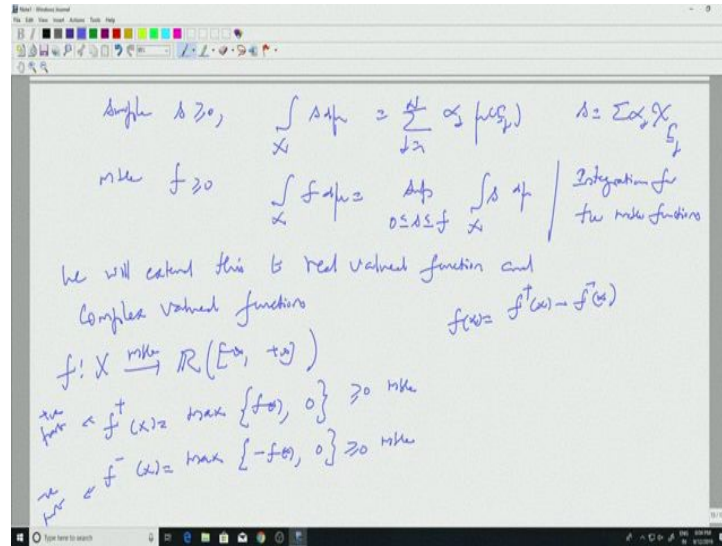 Note1 - Windows Journal
File Edit View Insert Actions Tools Help
simple s ≥ 0, ∫_X s dμ = Σ_{j=1}^N α_j μ(E_j) s = Σ α_j χ_{E_j}
mble f ≥ 0 ∫_X f dμ = sup_{0≤s≤f} ∫_X s dμ | Integration for
+ve mble functions
we will extend this to real valued function and
Complex valued functions
f(x) = f⁺(x) - f⁻(x)
f: X →^{mble} ℝ ([-∞, +∞])
+ve part ← f⁺(x) = max {f(x), 0} ≥ 0 mble
-ve part ← f⁻(x) = max {-f(x), 0} ≥ 0 mble
Type here to search